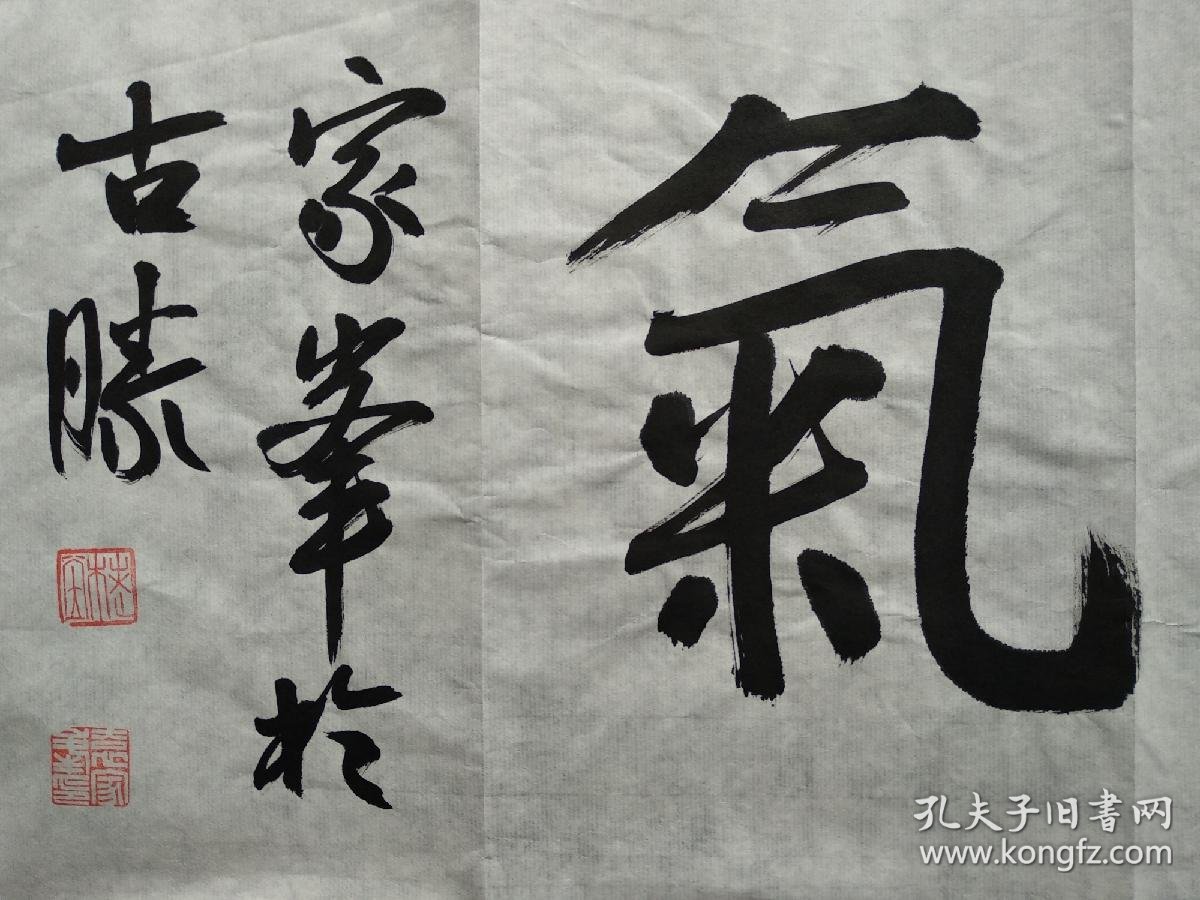 氣
家峯於
古滕
孔夫子旧書网
www.kongfz.com